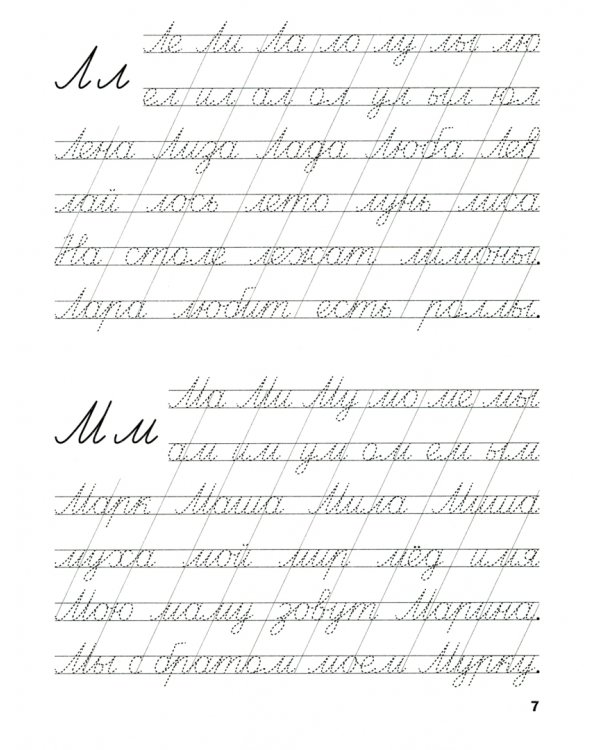 Ле Ли Ла ло лу лы лю
Лл
ел ил ал ол ул ыл юл
Лена Лиза Лада Люба Лев
лай лось лето лунь лиса
На столе лежат лимоны.
Лара любит есть роллы.
Ма Ми Му мо ме мы
Мм
ам им ум ом ем ым
Марк Маша Мила Миша
муха мой мир мёд имя
Мою маму зовут Марина.
Мы с братом моем Мурку.
7